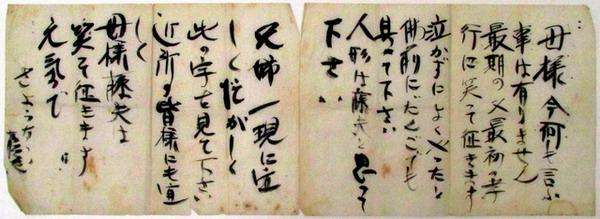 母様今何も言ふ
事は有りません
最期の又最初の孝
行に笑って征きます
泣かずによくやったと
佛前に、だんごでも
具へて下さい
人形は藤夫と思って
下さい
兄姉一現に宜
しく忙がしく
此の字を見て下さい
近所の皆様にも宜
しく
母様藤夫は
笑って征きます
元気で
さようなら
藤夫